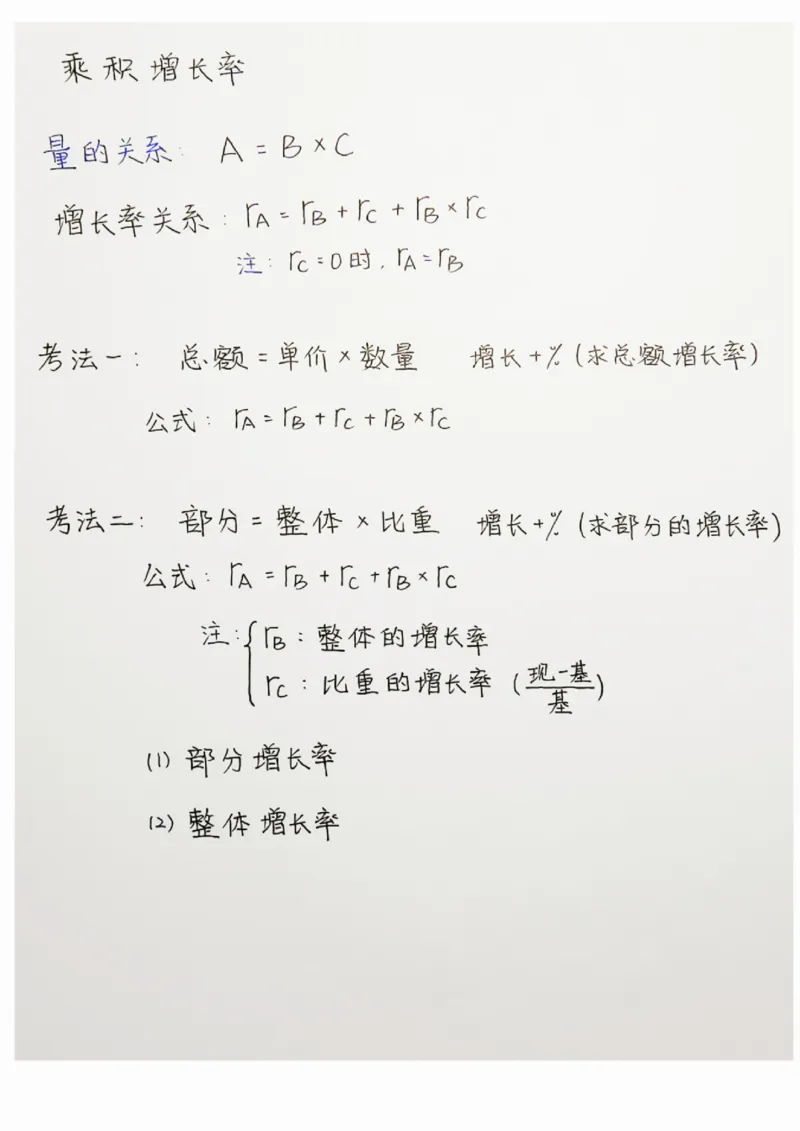 乘积增长率
量的关系: A = B × C
增长率关系: rA = rB + rC + rB × rC
注: rC = 0时, rA = rB
考法一: 总额 = 单价 × 数量 增长 + % (求总额增长率)
公式: rA = rB + rC + rB × rC
考法二: 部分 = 整体 × 比重 增长 + % (求部分的增长率)
公式: rA = rB + rC + rB × rC
注: { rB: 整体的增长率
rC: 比重的增长率 (现-基/基)
(1) 部分增长率
(2) 整体增长率